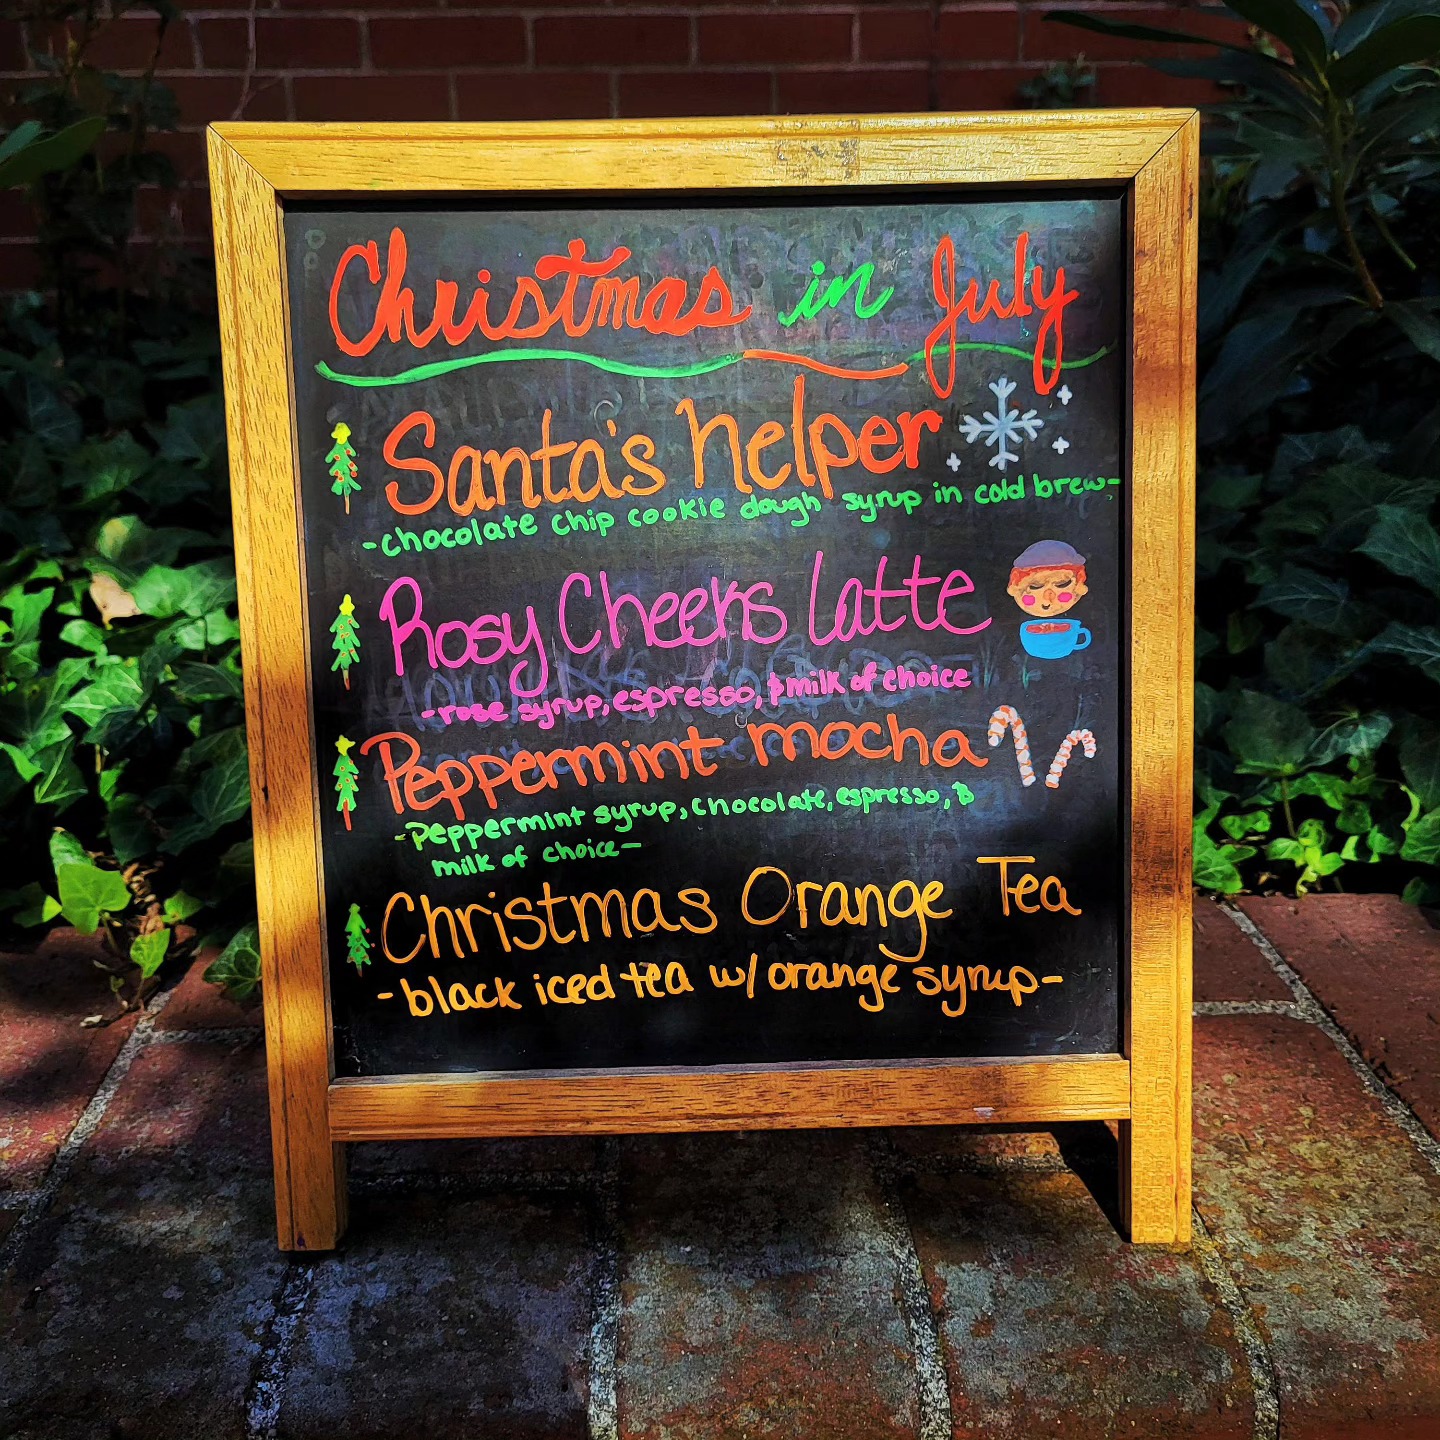 Christmas in July
Santa's helper
-chocolate chip cookie dough syrup in cold brew-
Rosy Cheeks Latte
-rose syrup, espresso, & milk of choice
Peppermint mocha
-Peppermint syrup, chocolate, espresso, &
milk of choice-
Christmas Orange Tea
-black iced tea w/ orange syrup-